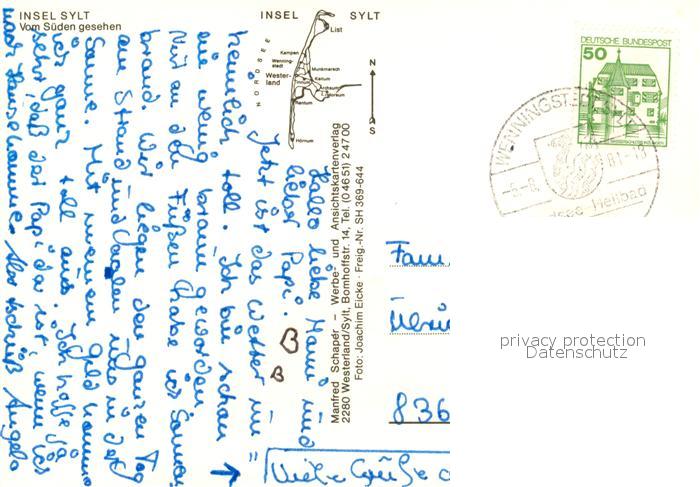 INSEL SYLT
Vom Süden gesehen
INSEL SYLT
NORDSEE
List
Kampen
Wenning-
stedt
Munkmarsch
Wester-
land
Keitum
Tinnum
Archsum
Morsum
Rantum
Hörnum
N
S
DEUTSCHE BUNDESPOST
50
WENNINGSTEDT
-6.-8. 81-18
Nordsee Heilbad
Manfred Schaper – Werbe- und Ansichtskartenverlag
2280 Westerland/Sylt, Bomhoffstr. 14, Tel. (0 46 51) 2 47 00
Foto: Joachim Eicke · Freig.-Nr. SH 369-644
Hallo liebe Mami und
lieber Papi.
Jetzt ist das Wetter un=
heimlich toll. Ich bin schon
ein wenig braun geworden
Nur an den Füßen habe ich Sonnen
brand. Wir liegen den ganzen Tag
am Strand und aalen uns in der
Sonne. Mit meinem Geld komme
ich ganz toll aus. Ich hoffe ja
sehr, daß der Papi da ist, wenn ich
nach Hause komme. Also tschüß Angela
Viele Grüße
Fam.
836
privacy protection
Datenschutz